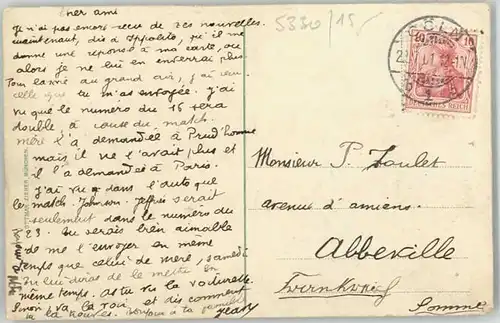 Cher ami
Je n'ai pas encore reçu de tes nouvelles.
maintenant, dis à Ippolito, qu'il me
donne une réponse à ma carte, ou
alors je ne lui en enverrai plus
Pour l'arme au grand air, j'ai
celle que tu m'as envoyée. J'ai
vu que le numéro du 16 sera
double, à cause du match.
mère l'a demandée à Prud'homme
mais, il ne l'avait plus et
il l'a demandée à Paris.
J'ai vu dans l'auto que
le match Johnson-Jeffries serait
seulement dans le numéro du
23. Tu serais bien aimable
de me l'envoyer en même
temps que celui de mère, samedi
tu lui diras de le mettre en
même temps. As-tu vu la
Sinon va la voir et dis comment
tu la trouves. bonjour à ta
Jean
5330/15
CÖLN
10 10
DEUTSCHES REICH
Monsieur P. Joulet
avenue d'amiens.
Abbeville
Frankreich
Somme